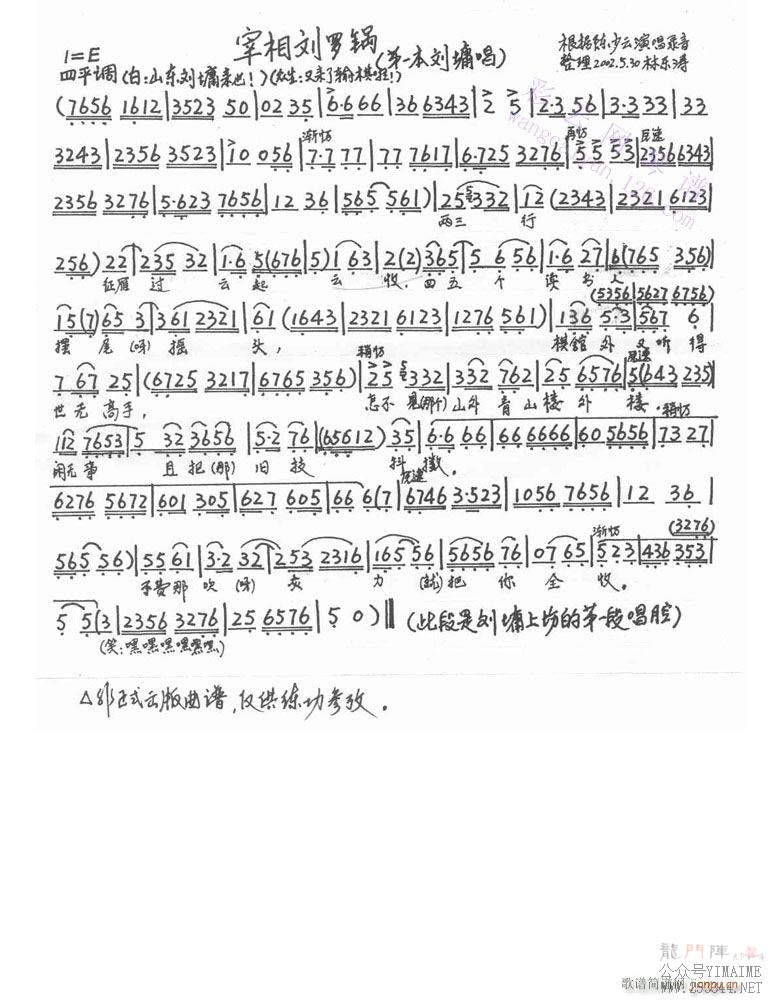 宰相刘罗锅
(第一本刘墉唱)
1=E
根据陈少云演唱录音
整理2002.5.30 林东涛
四平调(白:山东刘墉来也!)(众生:又来了输棋啦!)
(7656 1612|3523 50|02 35|6·666|36 6343|2 5|2·3 56|3·3 33|33
渐切 再切 尾速
3243|2356 3523|10 056|7·7 77|77 7617|6·725 3276|5 5 53|2356 6343|
2356 3276|5·623 7656|12 36|565 561)|25 332|12 (2343|2321 6123|
两三 行
256) 22|235 32|1·6 5(676|5) 1 63|2(2) 365|5 6 56|1·6 27|6(765 356)|
征雁 过 云 起 云 收, 四五 个 读 书 人
(5356|5627 6756)
15(7) 65 3|361 2321|61 (1643|2321 6123|1276 561)|136 5·3|567 6|
摆尾(呀)摇 头, 棋馆外 又听得
稍切 尾速
7 67 25|(6725 3217|6765 356)|25 332|332 762|25 6576|5(643 235)|
世无高手, 怎不见(那个)山外青山楼外 楼。
稍切
112 7653|5 32 3656|5·2 76|(65612) 35|6·6 66|66 6666|60 5656|73 27|
闲无事 且把(那)旧技 抖擞。
尾速
6276 5672|601 305|627 605|66 6(7|6746 3·523|1056 7656|12 36|
渐切 (3276)
565 56)|55 61|3·2 32|253 2316|165 56|5656 76|07 65|5 23|436 353|
不费那吹(呀)灰 力 (就)把 你 全 收。
5 5(3|2356 3276|25 6576|5 0)‖(此段是刘墉上场的第一段唱腔)
(笑:嘿嘿嘿嘿嘿嘿)
△非正式出版曲谱,仅供练功参考。
龍門陣
公众号YIMAIME
歌谱简谱网 jianpu.cn
www.255344.NET